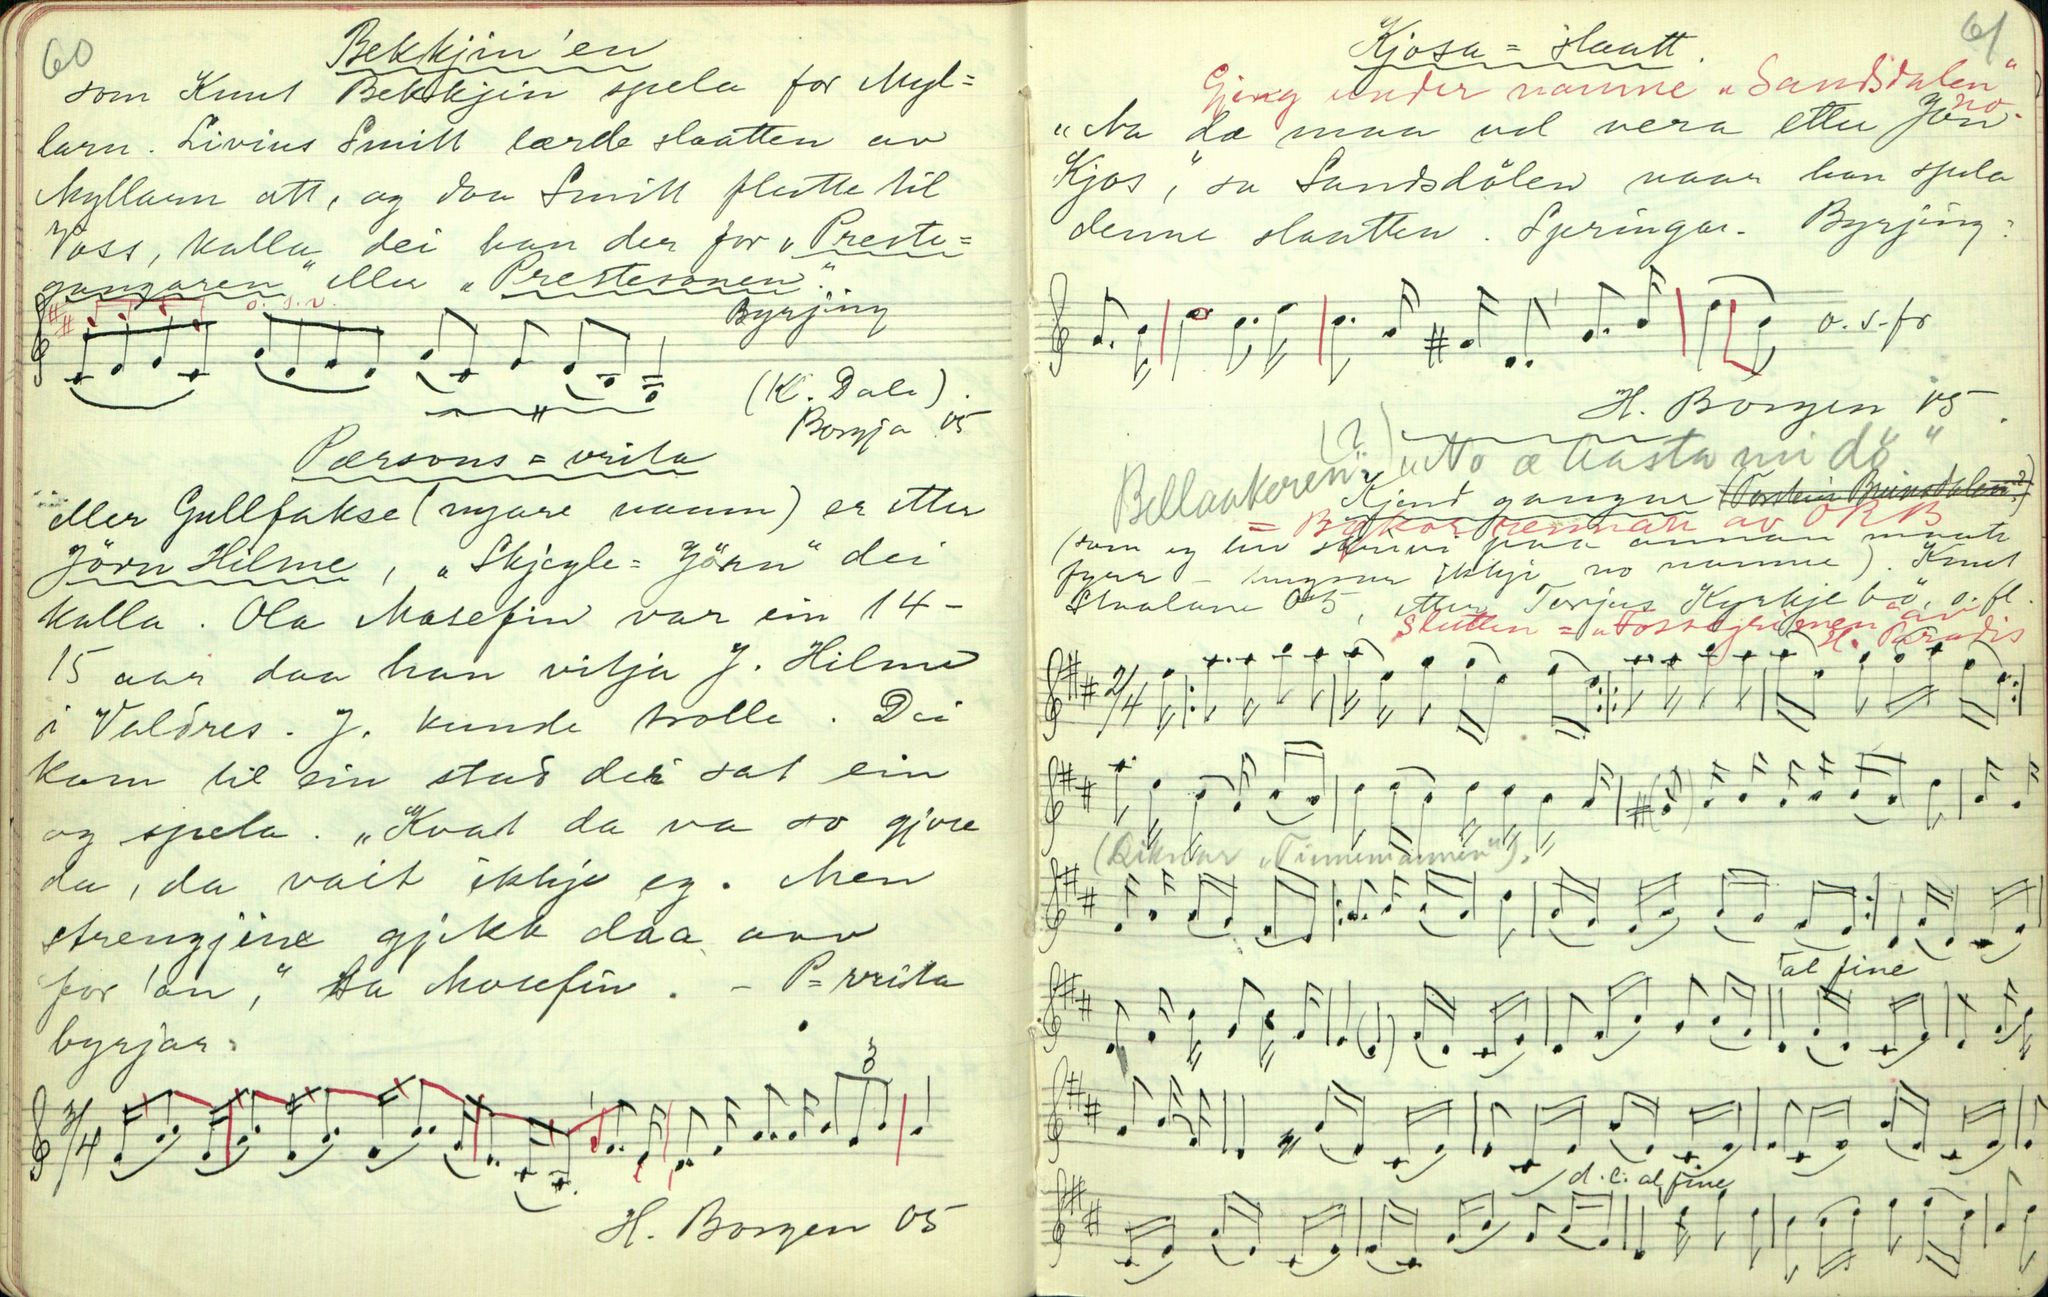 60
Bekkjin'en
som Knut Bekkjin spela for Myl=
larn. Livius Smitt lærde slaatten av
Myllarn att, og daa Smitt flutte til
Voss, kalla dei han der for „Preste=
gangaren" eller „Prestesonen".
o. s. v.
Byrjing
(K. Dale).
Borgja 05
Pærsons=vrita
eller Gullfakse (nyare namn) er etter
Jörn Hilme, „Skjegle=Jörn" dei
kalla. Ola Mosefin var ein 14-
15 aar daa han vitja J. Hilme
i Valdres. J. kunde trolle. Dei
kom til ein stad dei sat ein
og spela. „Kvat da va so gjore
da, da vait ikkje eg. Men
strengjine gjikk daa av
for 'an," sa Mosefin. – P=vrita
byrjar:
3/4
3
H. Borgen 05
61
Kjosa=slaatt.
Gjeng under namne „Sandsdalen"
no.
„Na da maa vel vera etter Jön
Kjos," sa Sandsdölen naar han spela
denne slaatten. Springar. Byrjing:
o. s. fr
H. Borgen 05.
(?)
Bellaakeren? „No æ hasta mi dö"
Kjend gangar
(som eg hev skrivi paa annan maate
fyrr – hugsar ikkje no namne). Knut
Straalane 05, etter Terjus Kyrkjebö, o. fl.
Slutten = „Fossegrimen" av
H. Paradis
2/4
(Liknar „Tinnemannen").
al fine
d. c. al fine